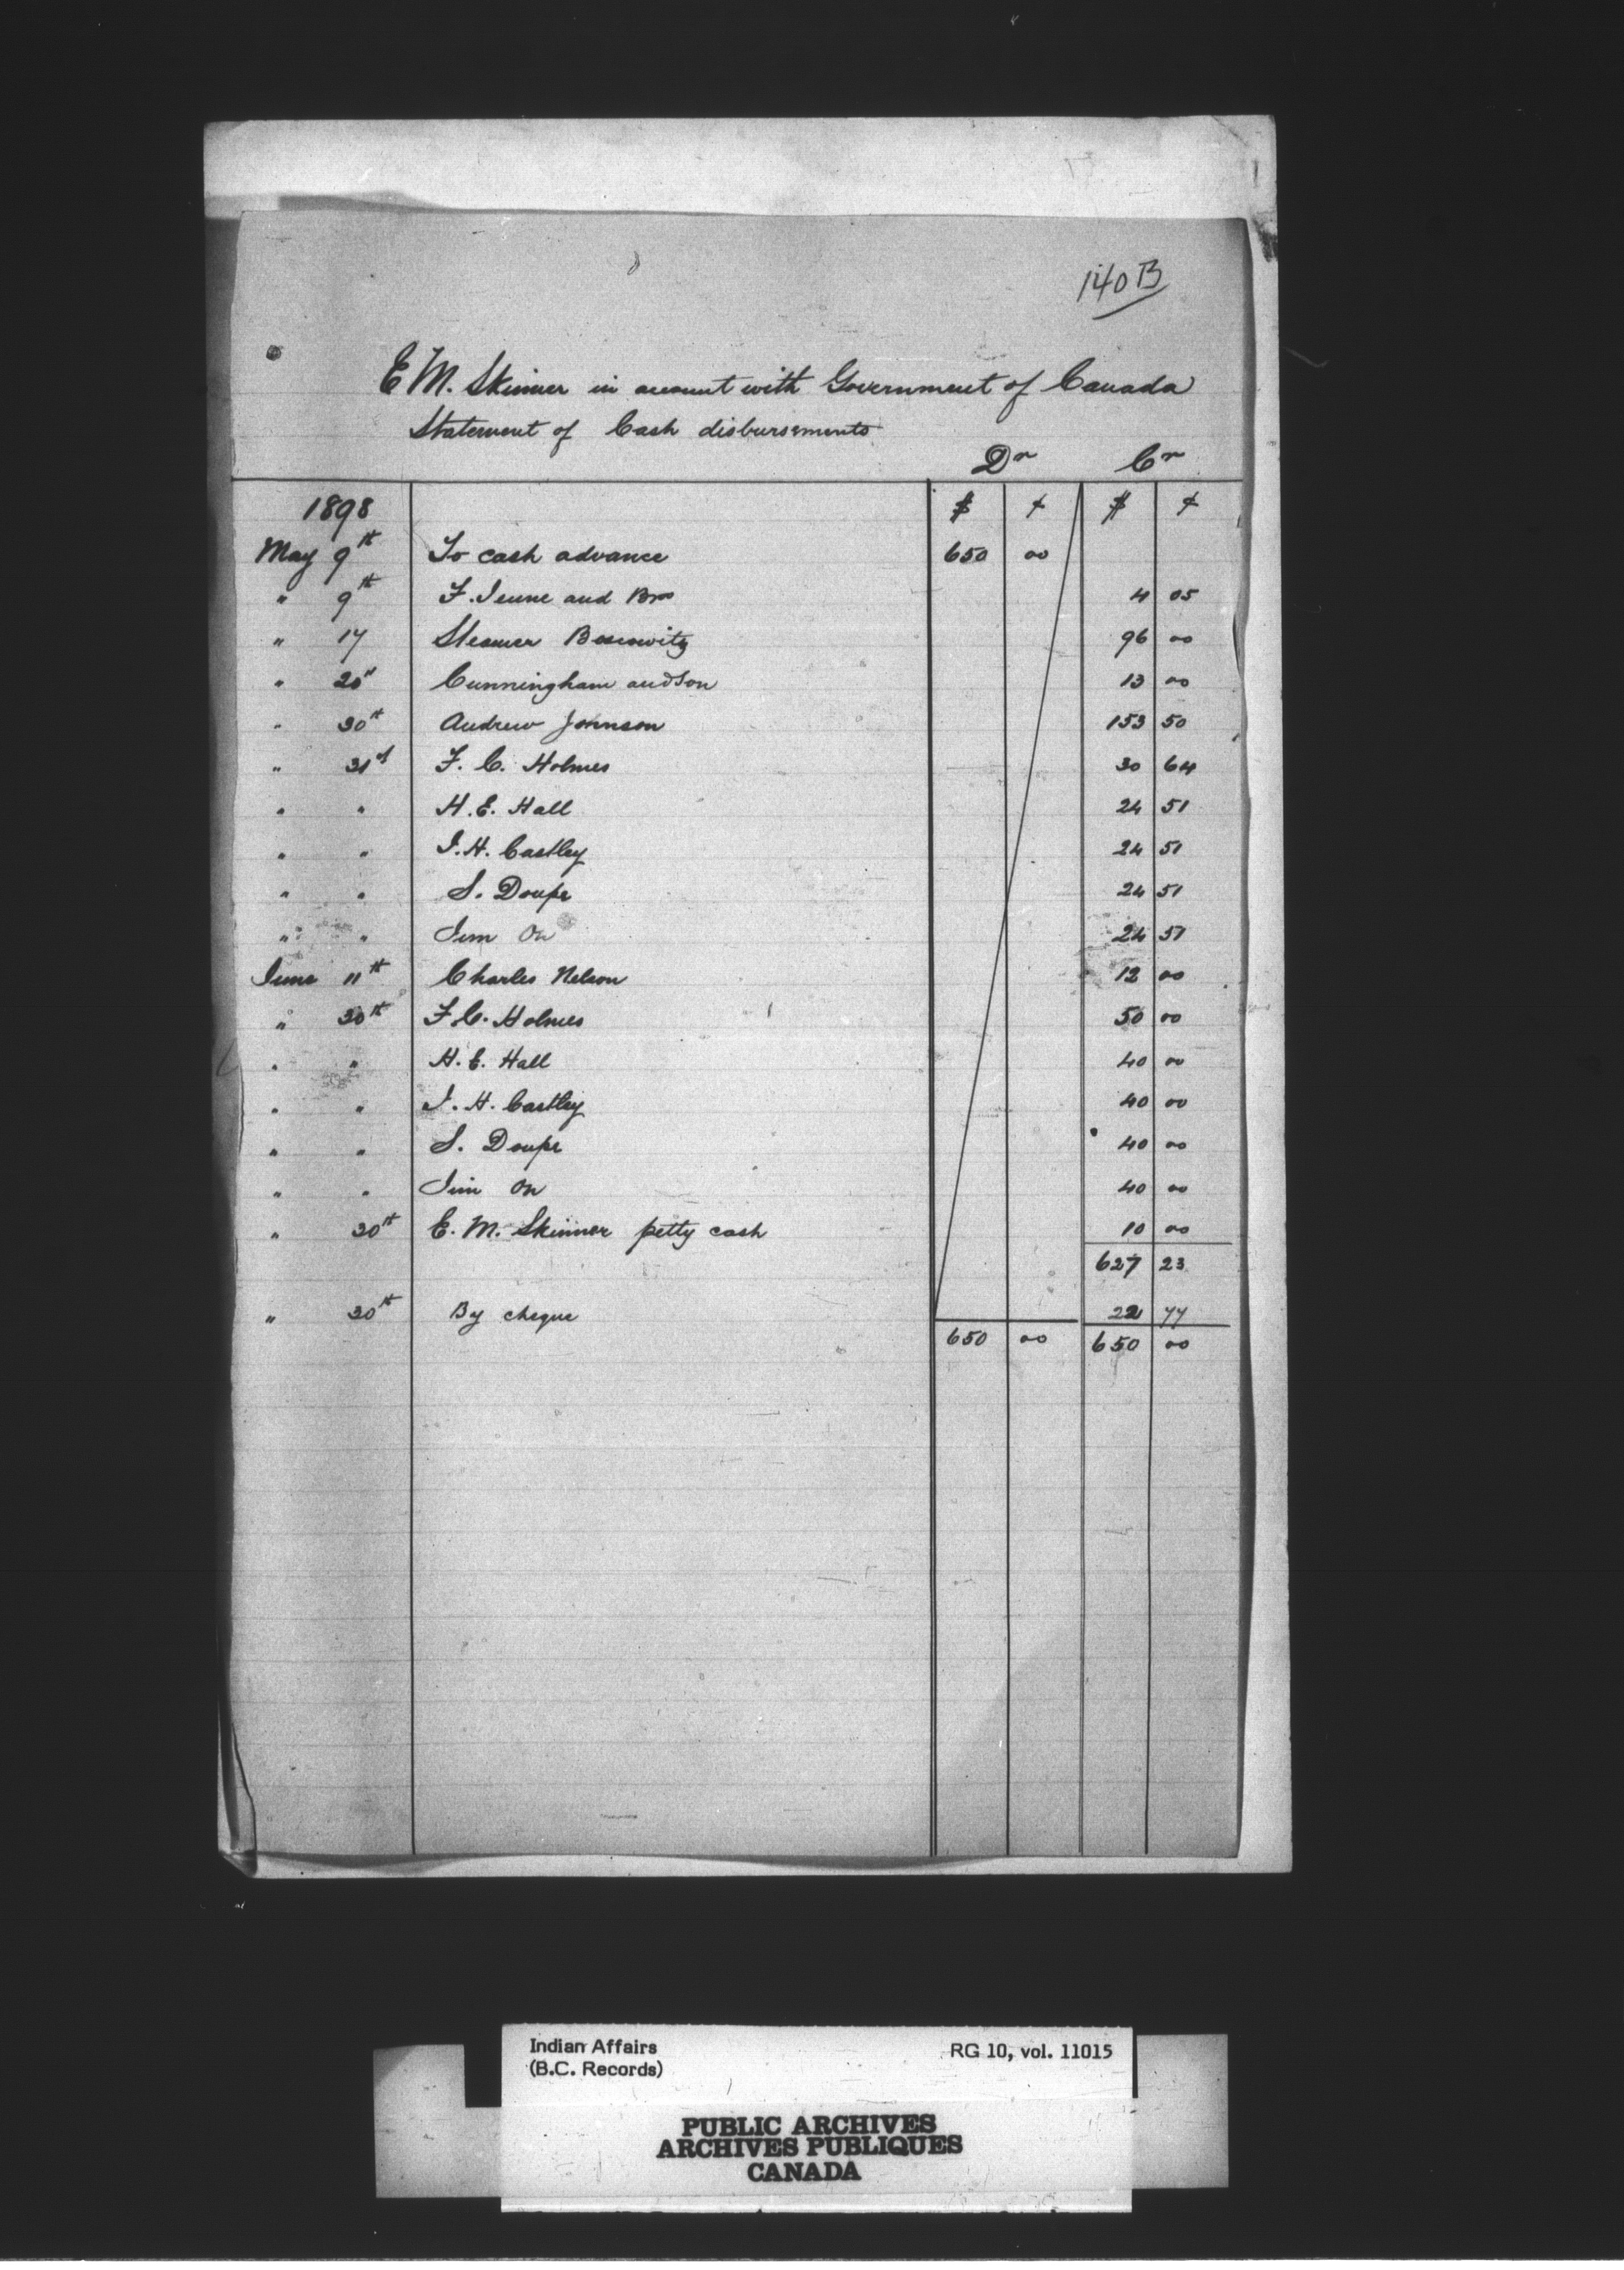 140 B
E M. Skinner in account with Government of Canada
Statement of Cash disbursements
Dr Cr
1898 $ ¢ $ ¢
May 9th To cash advance 650 00
" 9th F. Jeune and Bro 4 05
" 17 Steamer Boscowitz 96 00
" 20" Cunningham and Son 13 00
" 30th Andrew Johnson 153 50
" 31st F. C. Holmes 30 64
" " H. E. Hall 24 51
" " J. H. Castley 24 51
" " S. Doupe 24 51
" " Jim On 24 51
June 11th Charles Nelson 12 00
" 30th F. C. Holmes 50 00
" " H. E. Hall 40 00
" " J. H. Castley 40 00
" " S. Doupe 40 00
" " Jim On 40 00
" 30th E. M. Skinner petty cash 10 00
627 23
" 30th By cheque 22 77
650 00 650 00
Indian Affairs RG 10, vol. 11015
(B.C. Records)
PUBLIC ARCHIVES
ARCHIVES PUBLIQUES
CANADA